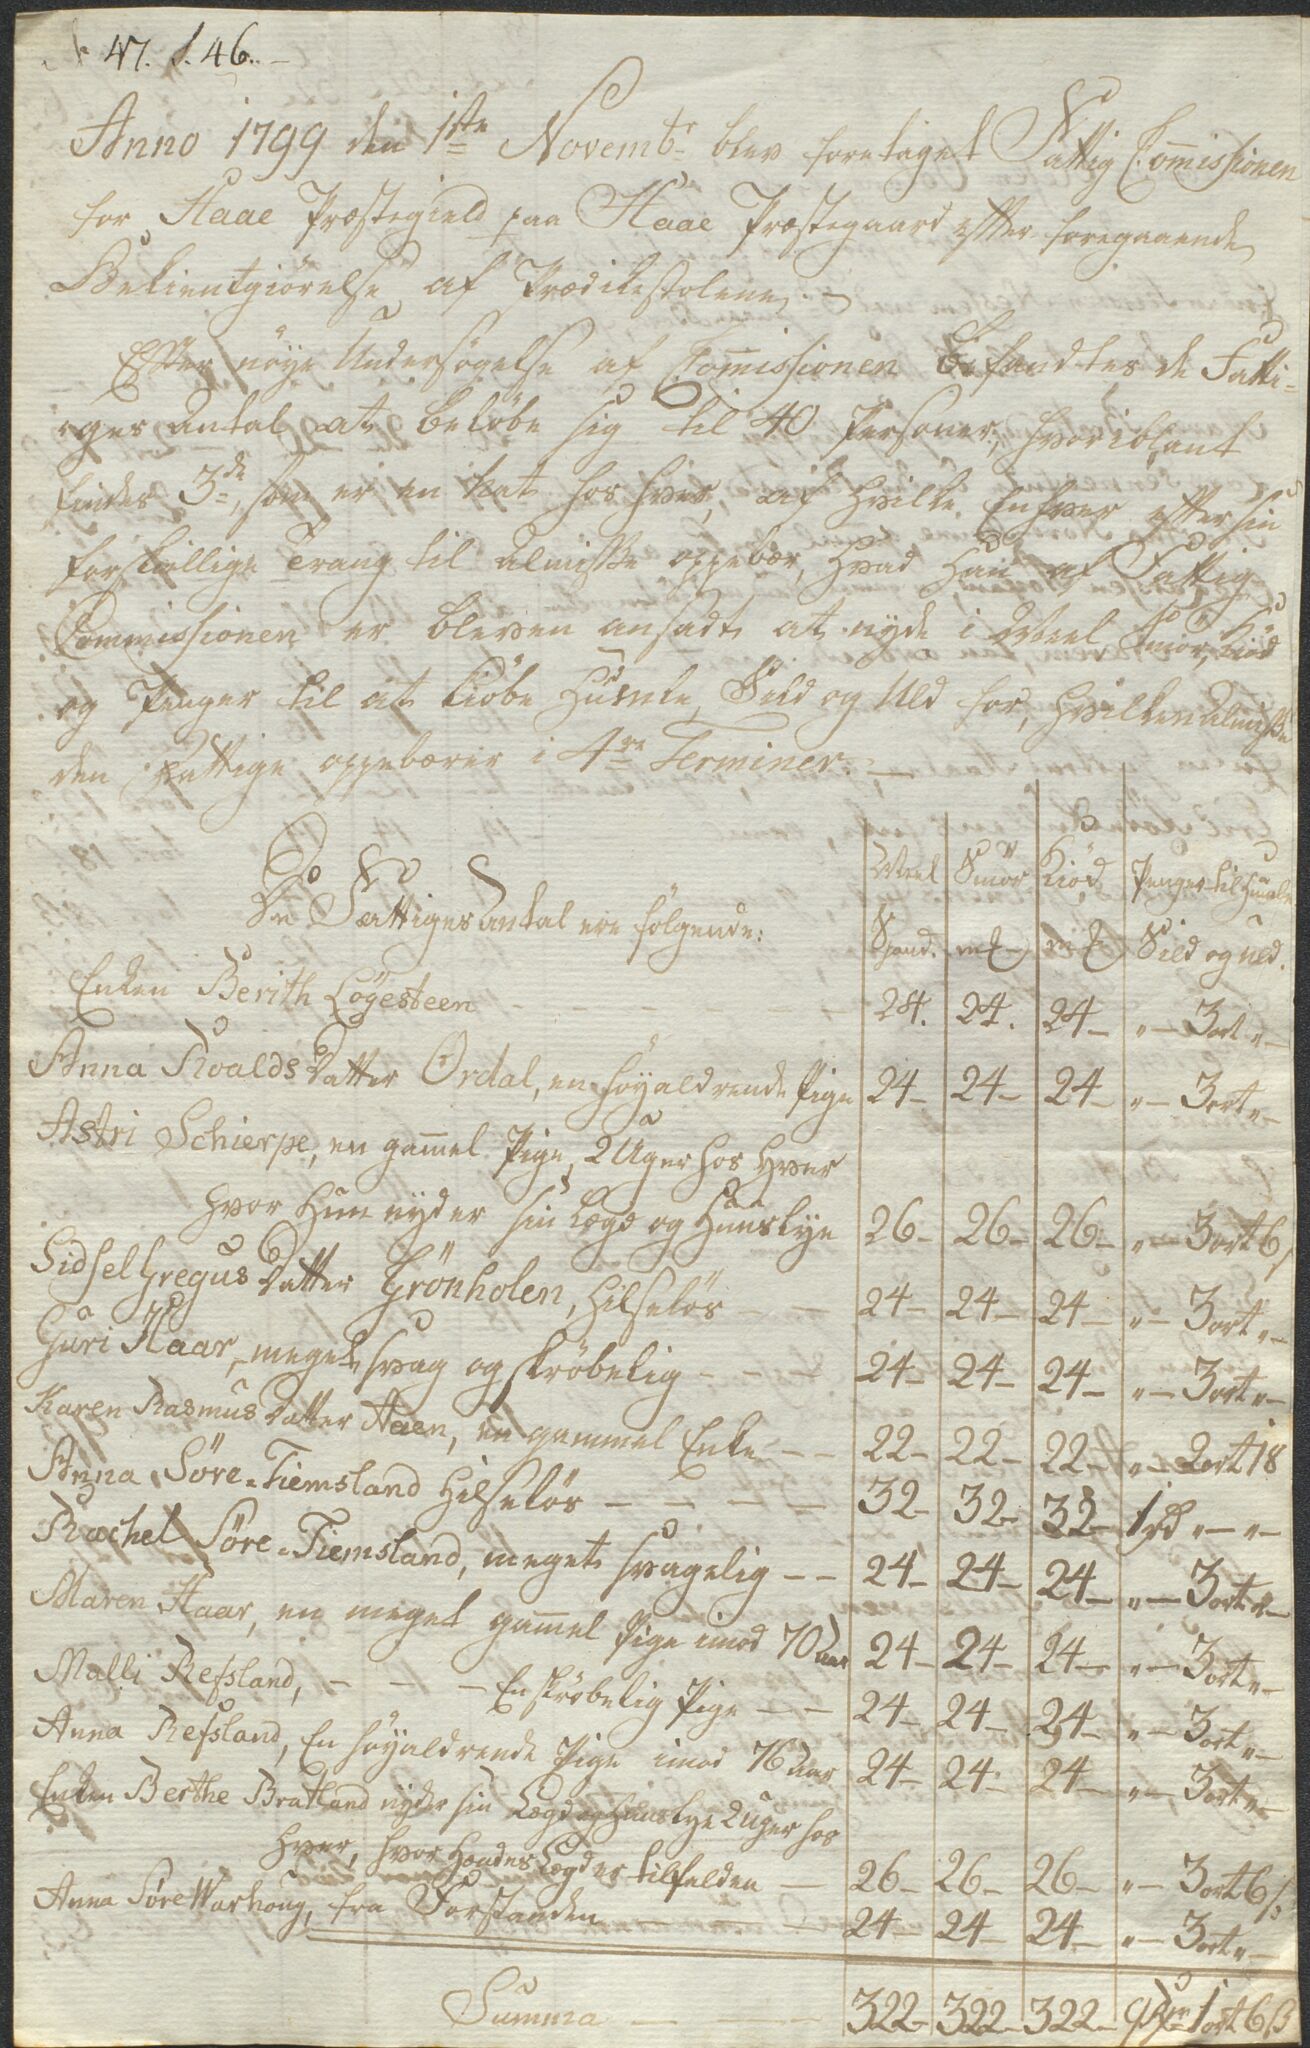 47. S. 46.
Anno 1799 den 1ste Novembr blev foretaget Fattig Commissionen
for Haae Præstegield paa Haae Præstegaard efter foregaaende
Bekientgiørelse af Prædikestolene.
Efter nöye Undersögelse af Commissionen befandtes de Fatti-
ges Antal at belöbe sig til 40 Personer, hvoriblant
findes 3de, som er en Nat hos hver, af hvilke Enhver efter sin
forskiellige Trang til Almisse oppebær, hvad Han af Fattig
Commissionen er bleven ansadt at nyde i Meel, Smör, Kiöd
og Penger til at kiöbe Humle, Sild og Uld for, hvilken Almisse
den Fattige oppebærer i 4re Terminer.
De Fattiges Antal ere fölgende: Meel Smör Kiöd Penger til Humle
Spand. Sild og uld.
Enken Berith Lögesteen - - - - 24. 24. 24 - " - 3 ort " -
Anna Roalds Datter Ordal, en höyaldrende Pige 24 - 24 - 24 - " - 3 ort " -
Astri Schierpe, en gam̄el Pige, 2 Uger hos Hver
hvor Hun nyder sin Lægd og Huuslye 26 - 26 - 26 - " - 3 ort 6 s
Sidsel Gregus Datter Grönholen, Hilselös - - 24 - 24 - 24 - " - 3 ort " -
Guri Haar, meget svag og skröbelig - - - 24 - 24 - 24 - " - 3 ort " -
Karen Rasmus Datter Aaen, en gammel Enke - - 22 - 22 - 22 - " - 2 ort 18
Anna Söre-Tiemsland Hilselös - - - - 32 - 32 - 32 - 1 rd " - " -
Rachel Söre-Tiemsland, meget svagelig - - 24 - 24 - 24 - " - 3 ort " -
Maren Haar, en meget gam̄el Pige imod 70 Aar 24 - 24 - 24 - " - 3 ort " -
Malli Refsland, - - - En skröbelig Pige - - 24 - 24 - 24 - " - 3 ort " -
Anna Refsland, En höyaldrende Pige imod 76 Aar 24 - 24 - 24 - " - 3 ort " -
Enken Berthe Bratland nyder sin Lægd og Huuslye 2 Uger hos
Hver, hvor Hendes Lægd er tilfalden - 26 - 26 - 26 - " - 3 ort 6 s
Anna Söre Warhoug, fra Forstanden - - - 24 - 24 - 24 - " - 3 ort " -
Summa - - - 322 - 322 - 322 - 9 1 ort 6 s